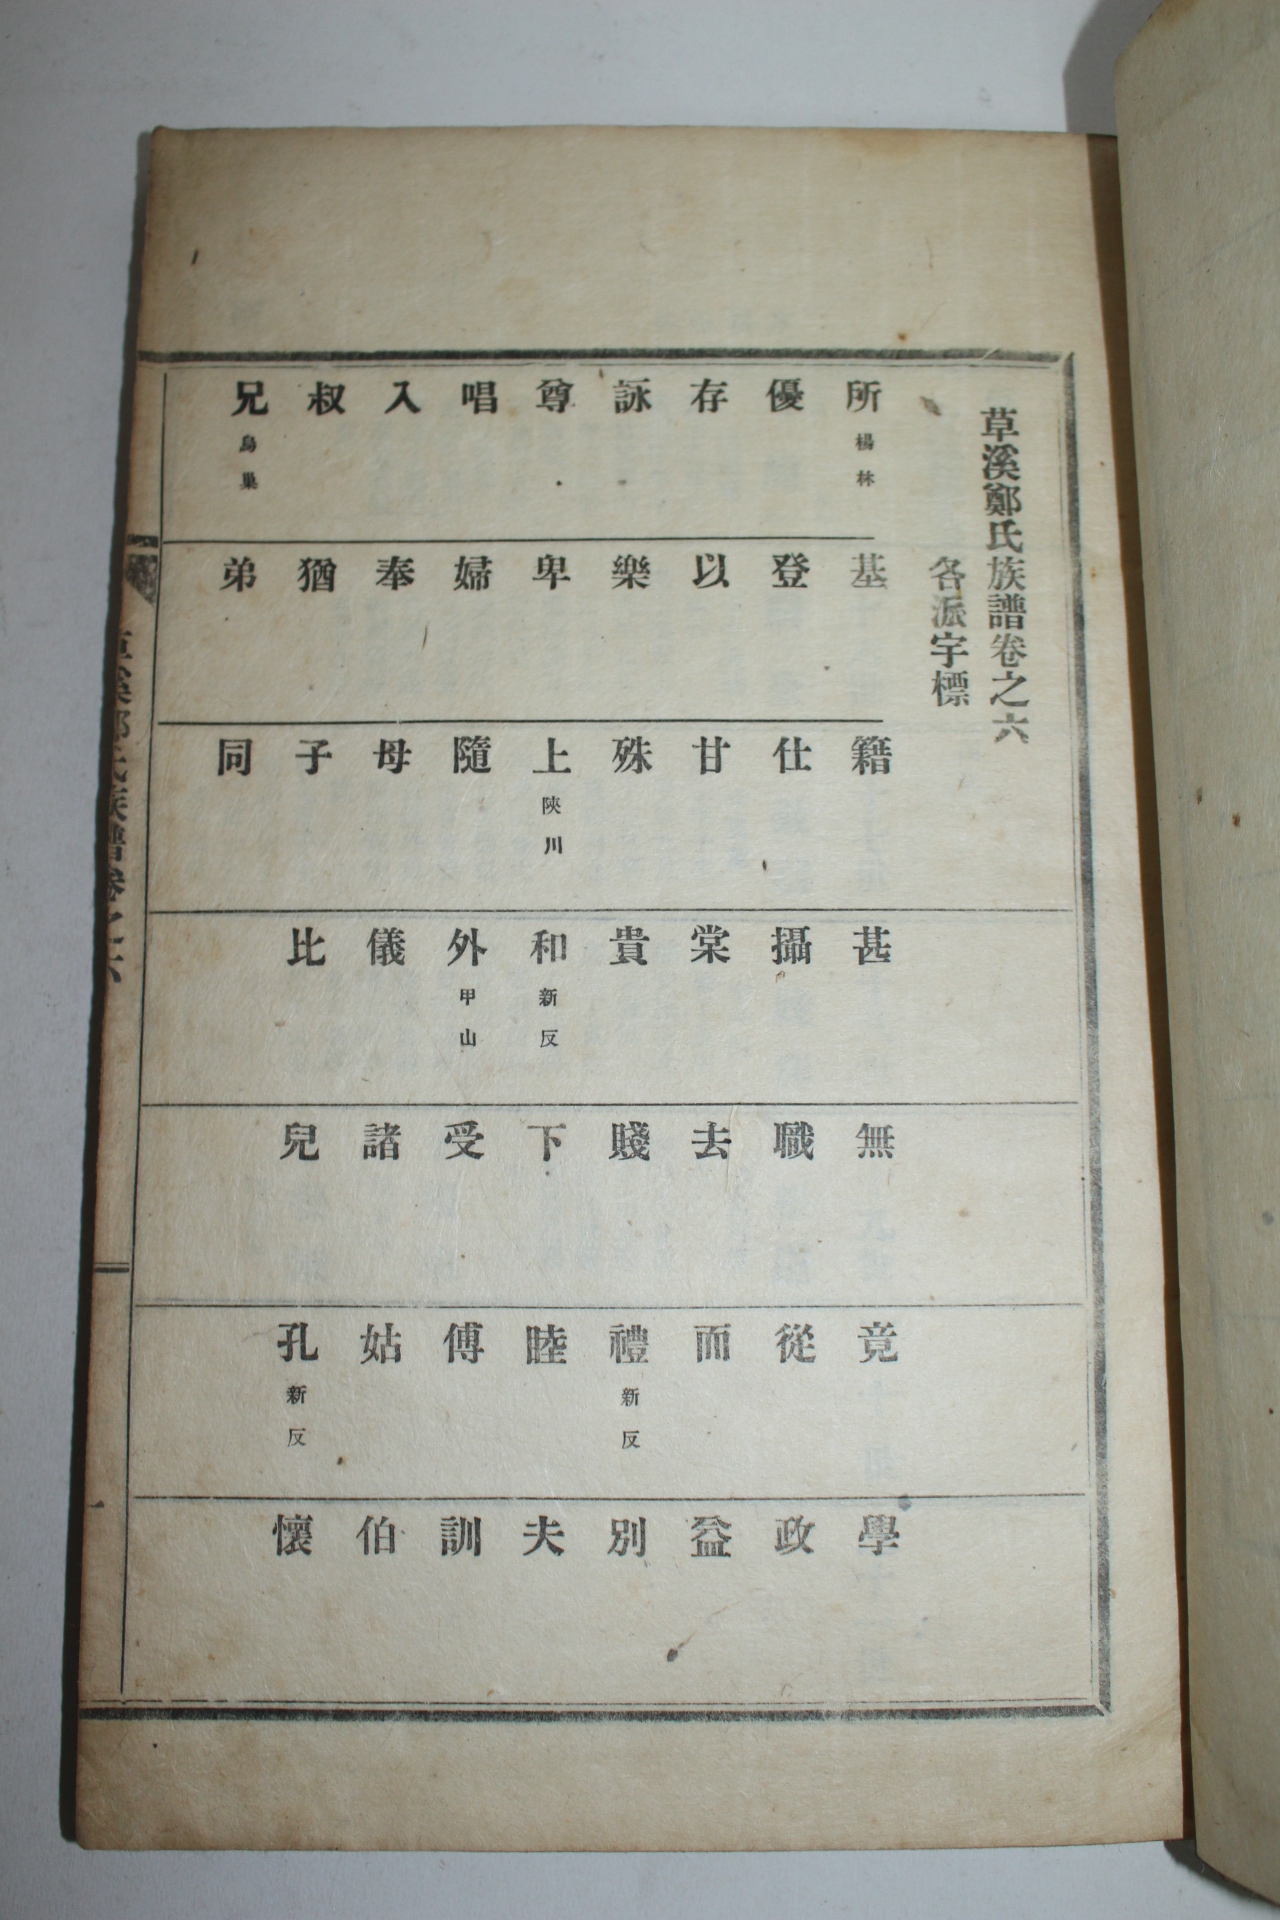 草溪鄭氏族譜卷之六
各派字標
所 楊林 基 籍 甚 無 竟 學
優 登 仕 攝 職 從 政
存 以 甘 棠 去 而 益
詠 樂 殊 貴 賤 禮 新反 別
尊 卑 上 陜川 和 新反 下 睦 夫
唱 婦 隨 外 甲山 受 傅 訓
入 奉 母 儀 諸 姑 伯
叔 猶 子 比 兒 孔 新反 懷
兄 鳥巢 弟 同
草溪鄭氏族譜卷之六 一